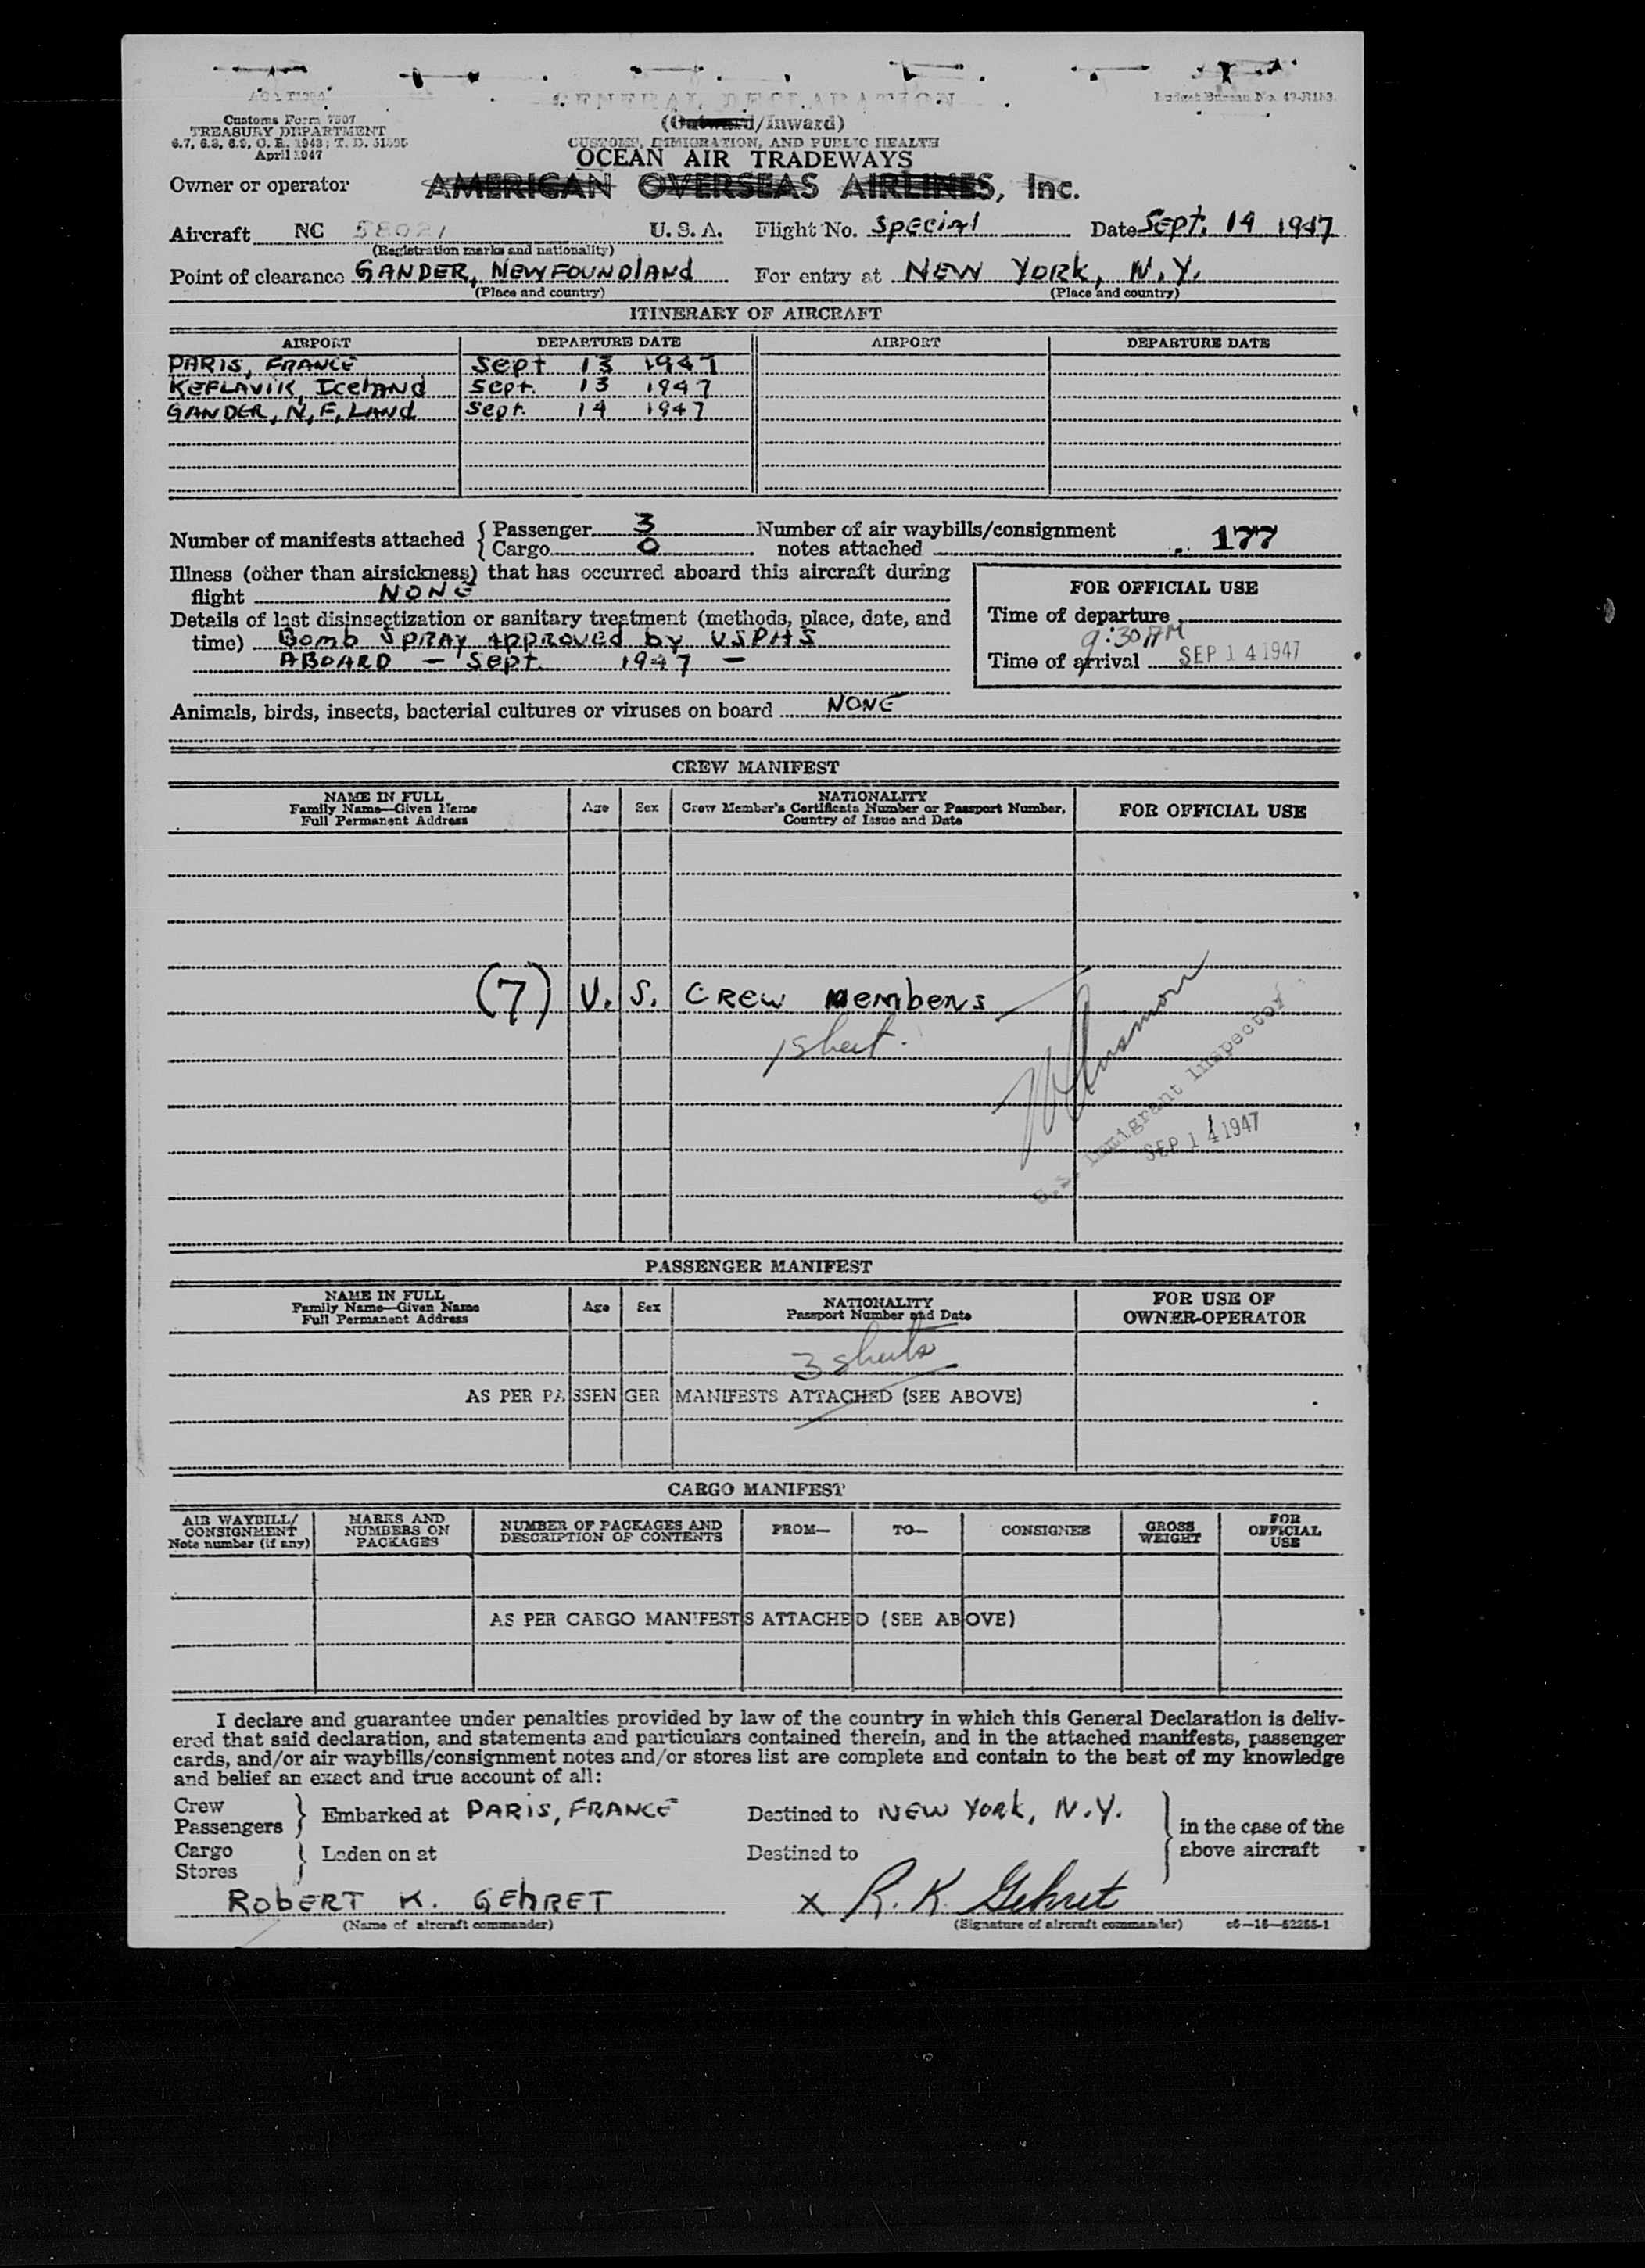 GENERAL DECLARATION
(Outward/Inward)
Customs Form 7507
TREASURY DEPARTMENT
April 1947
CUSTOMS, IMMIGRATION, AND PUBLIC HEALTH
OCEAN AIR TRADEWAYS
Owner or operator AMERICAN OVERSEAS AIRLINES, Inc.
Aircraft NC 58021 U. S. A. Flight No. Special Date Sept. 14 1947
(Registration marks and nationality)
Point of clearance GANDER, NEWFOUNDLAND For entry at NEW YORK, N.Y.
(Place and country) (Place and country)
ITINERARY OF AIRCRAFT
AIRPORT DEPARTURE DATE AIRPORT DEPARTURE DATE
PARIS, FRANCE Sept 13 1947
KEFLAVIK, Iceland Sept. 13 1947
GANDER, N, F, LAND Sept. 14 1947
Number of manifests attached { Passenger 3 Number of air waybills/consignment
Cargo 0 notes attached 177
Illness (other than airsickness) that has occurred aboard this aircraft during
flight NONE
FOR OFFICIAL USE
Details of last disinsectization or sanitary treatment (methods, place, date, and
time) Bomb SPRAY APPROVED by USPHS
ABOARD — Sept 1947 —
Time of departure
9:30 AM
Time of arrival SEP 14 1947
Animals, birds, insects, bacterial cultures or viruses on board NONE
CREW MANIFEST
NAME IN FULL
Family Name—Given Name
Full Permanent Address
Age Sex
NATIONALITY
Crew Member's Certificate Number or Passport Number,
Country of Issue and Date
FOR OFFICIAL USE
(7) U. S. CREW Members
1 sheet.
U.S. Immigrant Inspector
SEP 14 1947
PASSENGER MANIFEST
NAME IN FULL
Family Name—Given Name
Full Permanent Address
Age Sex
NATIONALITY
Passport Number and Date
FOR USE OF
OWNER-OPERATOR
3 sheets
AS PER PASSENGER MANIFESTS ATTACHED (SEE ABOVE)
CARGO MANIFEST
AIR WAYBILL/
CONSIGNMENT
Note number (if any)
MARKS AND
NUMBERS ON
PACKAGES
NUMBER OF PACKAGES AND
DESCRIPTION OF CONTENTS
FROM— TO— CONSIGNEE
GROSS
WEIGHT
FOR
OFFICIAL
USE
AS PER CARGO MANIFESTS ATTACHED (SEE ABOVE)
I declare and guarantee under penalties provided by law of the country in which this General Declaration is deliv-
ered that said declaration, and statements and particulars contained therein, and in the attached manifests, passenger
cards, and/or air waybills/consignment notes and/or stores list are complete and contain to the best of my knowledge
and belief an exact and true account of all:
Crew
Passengers } Embarked at PARIS, FRANCE Destined to NEW YORK, N.Y.
in the case of the
above aircraft
Cargo
Stores } Laden on at Destined to
ROBERT K. GEHRET X R. K. Gehret
(Name of aircraft commander) (Signature of aircraft commander) c6—16—52255-1